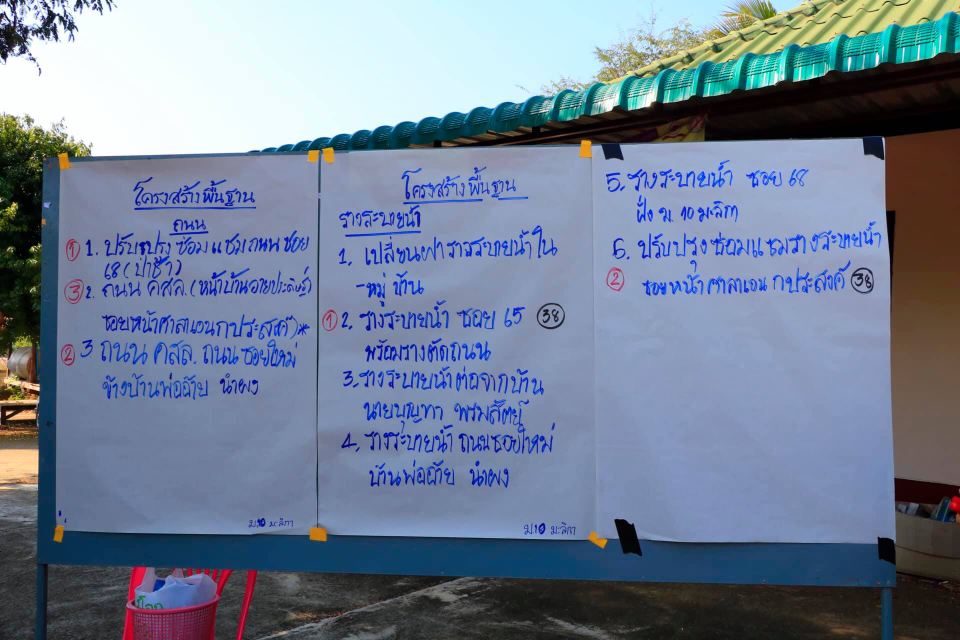 โครงสร้างพื้นฐาน
ถนน
① 1. ปรับปรุง ซ่อม แซม ถนน ซอย
68 (ป่าช้า)
③ 2. ถนน คสล. (หน้าบ้านอายประดิษฐ์)
ซอยหน้าศาลาเอนกประสงค์)*
② 3 ถนน คสล. ถนน ซอยใหม่
ข้างบ้านพ่อฉ้าย นำผง
ม.10 มะลิกา
โครงสร้างพื้นฐาน
รางระบายน้ำ
1. เปลี่ยนฝารางระบายน้ำใน
-หมู่บ้าน
① 2. รางระบายน้ำ ซอย 65 38
พร้อมรางตัดถนน
3. รางระบายน้ำต่อจากบ้าน
นายบุญทา พรมสัตย์
4. รางระบายน้ำ ถนนซอยใหม่
บ้านพ่อฉ้าย นำผง
ม.10 มะลิกา
5. รางระบายน้ำ ซอย 68
ฝั่ง ม. 10 มะลิกา
6. ปรับปรุงซ่อมแซมรางระบายน้ำ
② ซอยหน้าศาลาเอนกประสงค์ 38